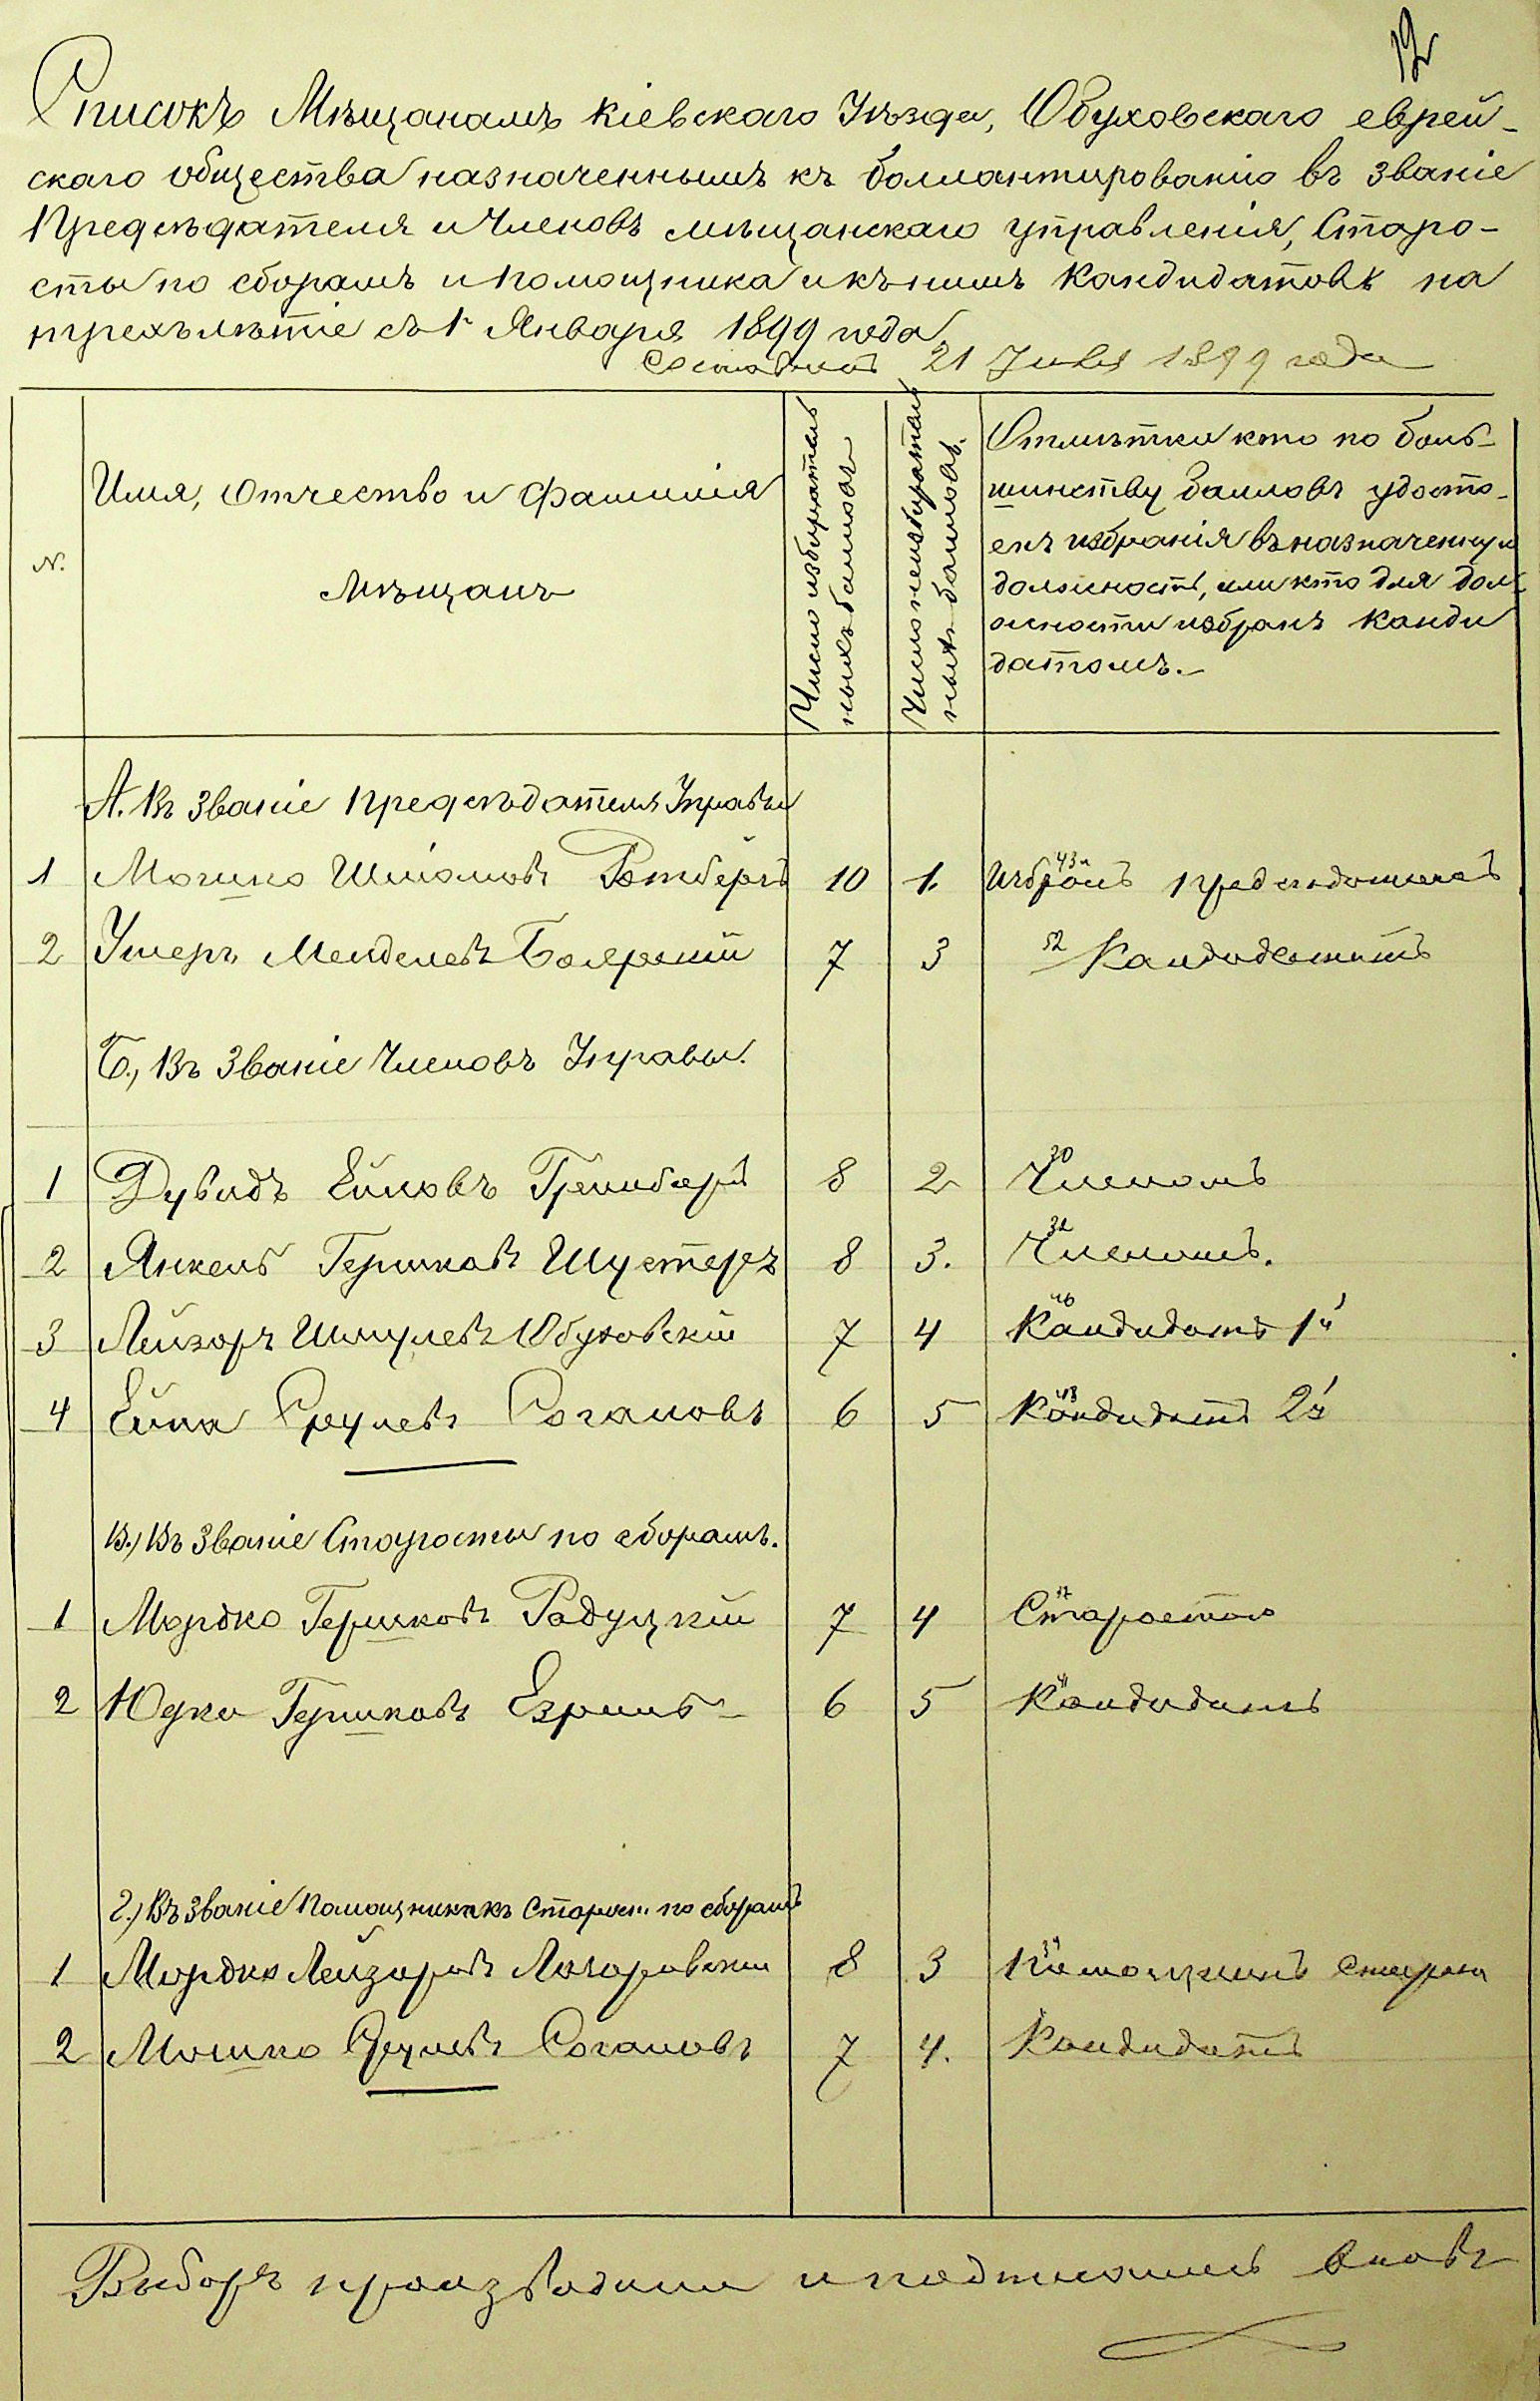 12
Списокъ Мѣщанамъ Кіевскаго Уѣзда, Обуховскаго еврей-
скаго общества назначеннымъ къ баллантированію въ званіе
Предсѣдателя и Членовъ мѣщанскаго управленія, Старо-
сты по сборамъ и помощника и къ нимъ кандидатовъ на
трехълѣтіе съ 1 Января 1899 года.
21 Июля 1899 года
N.
Имя, Отчество и Фамилія
Мѣщанъ
Число избиратель
ныхъ балловъ
Число неизбиратель
ныхъ балловъ.
Отмѣтка кто по боль-
шинству балловъ удосто-
енъ избранія въ назначенную
должность, или кто для дол-
жности избранъ канди
датомъ.-
А. Въ Званіе Предсѣдателя Управы
1 Мошко Шліомовъ Ротберъ 10 1. Избранъ предсѣдателемъ
43
2 Ушеръ Менделевъ Боярский 7 3 52 Кандидатомъ
Б., Въ Званіе Членовъ Управы.
1 Дувидъ Ейновъ Гринберъ 8 2 Членомъ
30
2 Янкель Гершковъ Шустеръ 8 3. Членомъ.
32
3 Лейзоръ Шмулевъ Обуховскій 7 4 Кандидатъ 1й
46
4 Ейна Срулевъ Согаловъ 6 5 Кандидатъ 2й
48
В.) Въ Званіе Старосты по сборамъ.
1 Мордко Гершковъ Радуцкій 7 4 Старостою
37
2 Юдко Гершковъ Езриль 6 5 Кандидатъ
41
Г.) Въ Званіе Помощника къ Старосты по сборамъ
1 Мордко Лейзаровъ Лазаровский 8 3 Помощникъ старосты
34
2 Мошко Срулевъ Согаловъ 7 4. Кандидатъ
Выборъ произвадили и подписались